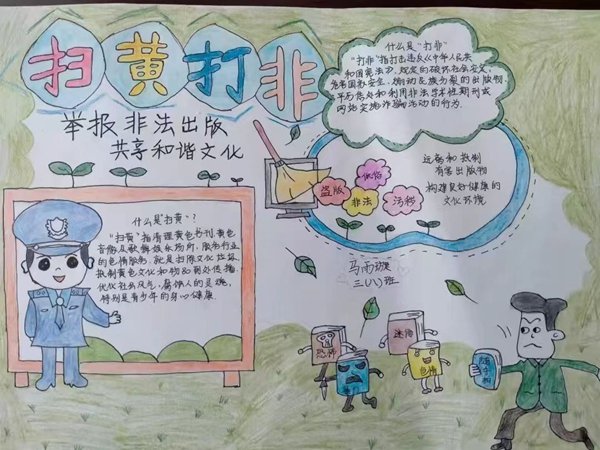 扫黄打非
举报非法出版
共享和谐文化
什么是"扫黄"?
"扫黄"指清理黄色书刊、黄色
音像及歌舞娱乐场所、服务行业
的色情服务,就是扫除文化垃圾,
抵制黄色文化和物品或处传播
优化社会风气,腐蚀人的灵魂,
特别是青少年的身心健康.
什么是"打非"
"打非"指打击违反《中华人民共
和国宪法》规定的破坏社会安定
危害国家安全,煽动民族分裂的出版物
网站实施诈骗活动的行为.
盗版
低俗
非法
污秽
远离和抵制
有害出版物
构建良好健康的
文化环境
三(八)班
恐怖
暴力
迷信
色情